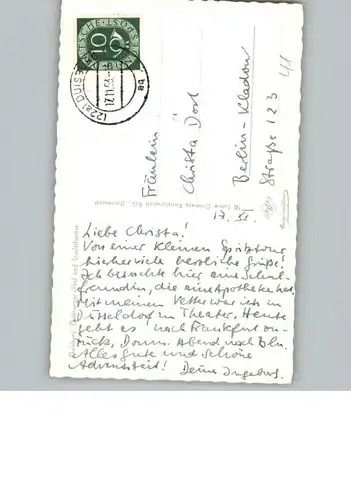 DEUTSCHE BUNDESPOST
10
(22a) DUISBURG
Fräulein
Christa Dort
Berlin-Kladow
Straße 123
Agfa
Liebe Christa!
Von einer kleinen Spritztour
hierher viele herzliche Grüße!
Ich besuchte hier eine Schul-
freundin, die eine Apotheke hat.
Mit meinem Vetter war ich in
Düsseldorf im Theater. Heute
geht es nach Frankfurt zu-
rück, Donn. Abend nach Bln.
Alles gute und schöne
Adventszeit! Deine Ingeborg.